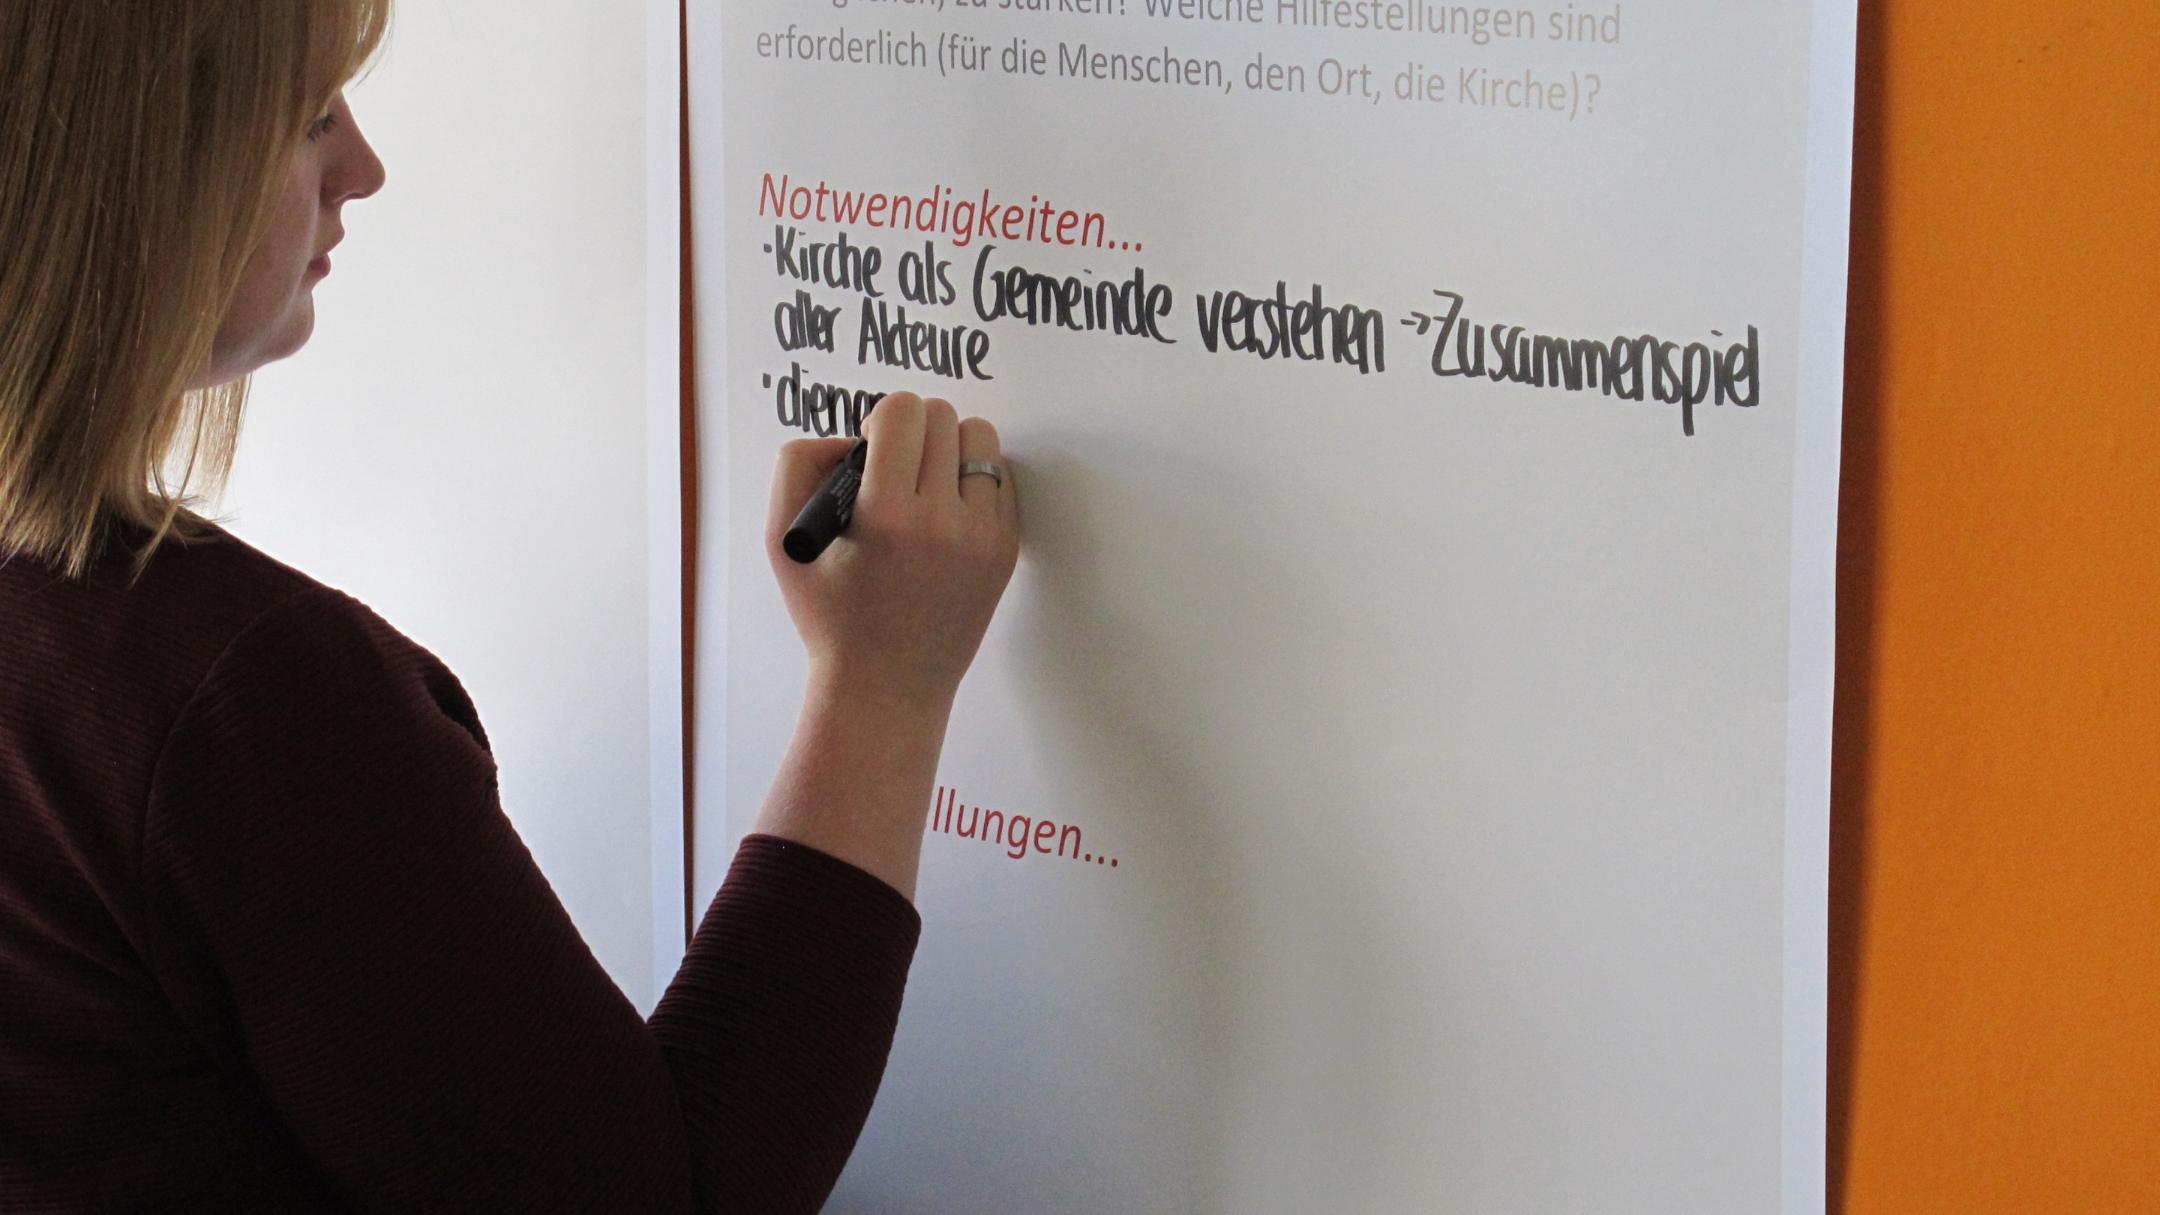 zu stärken? Welche Hilfestellungen sind
erforderlich (für die Menschen, den Ort, die Kirche)?
Notwendigkeiten...
·Kirche als Gemeinde verstehen →Zusammenspiel
aller Akteure